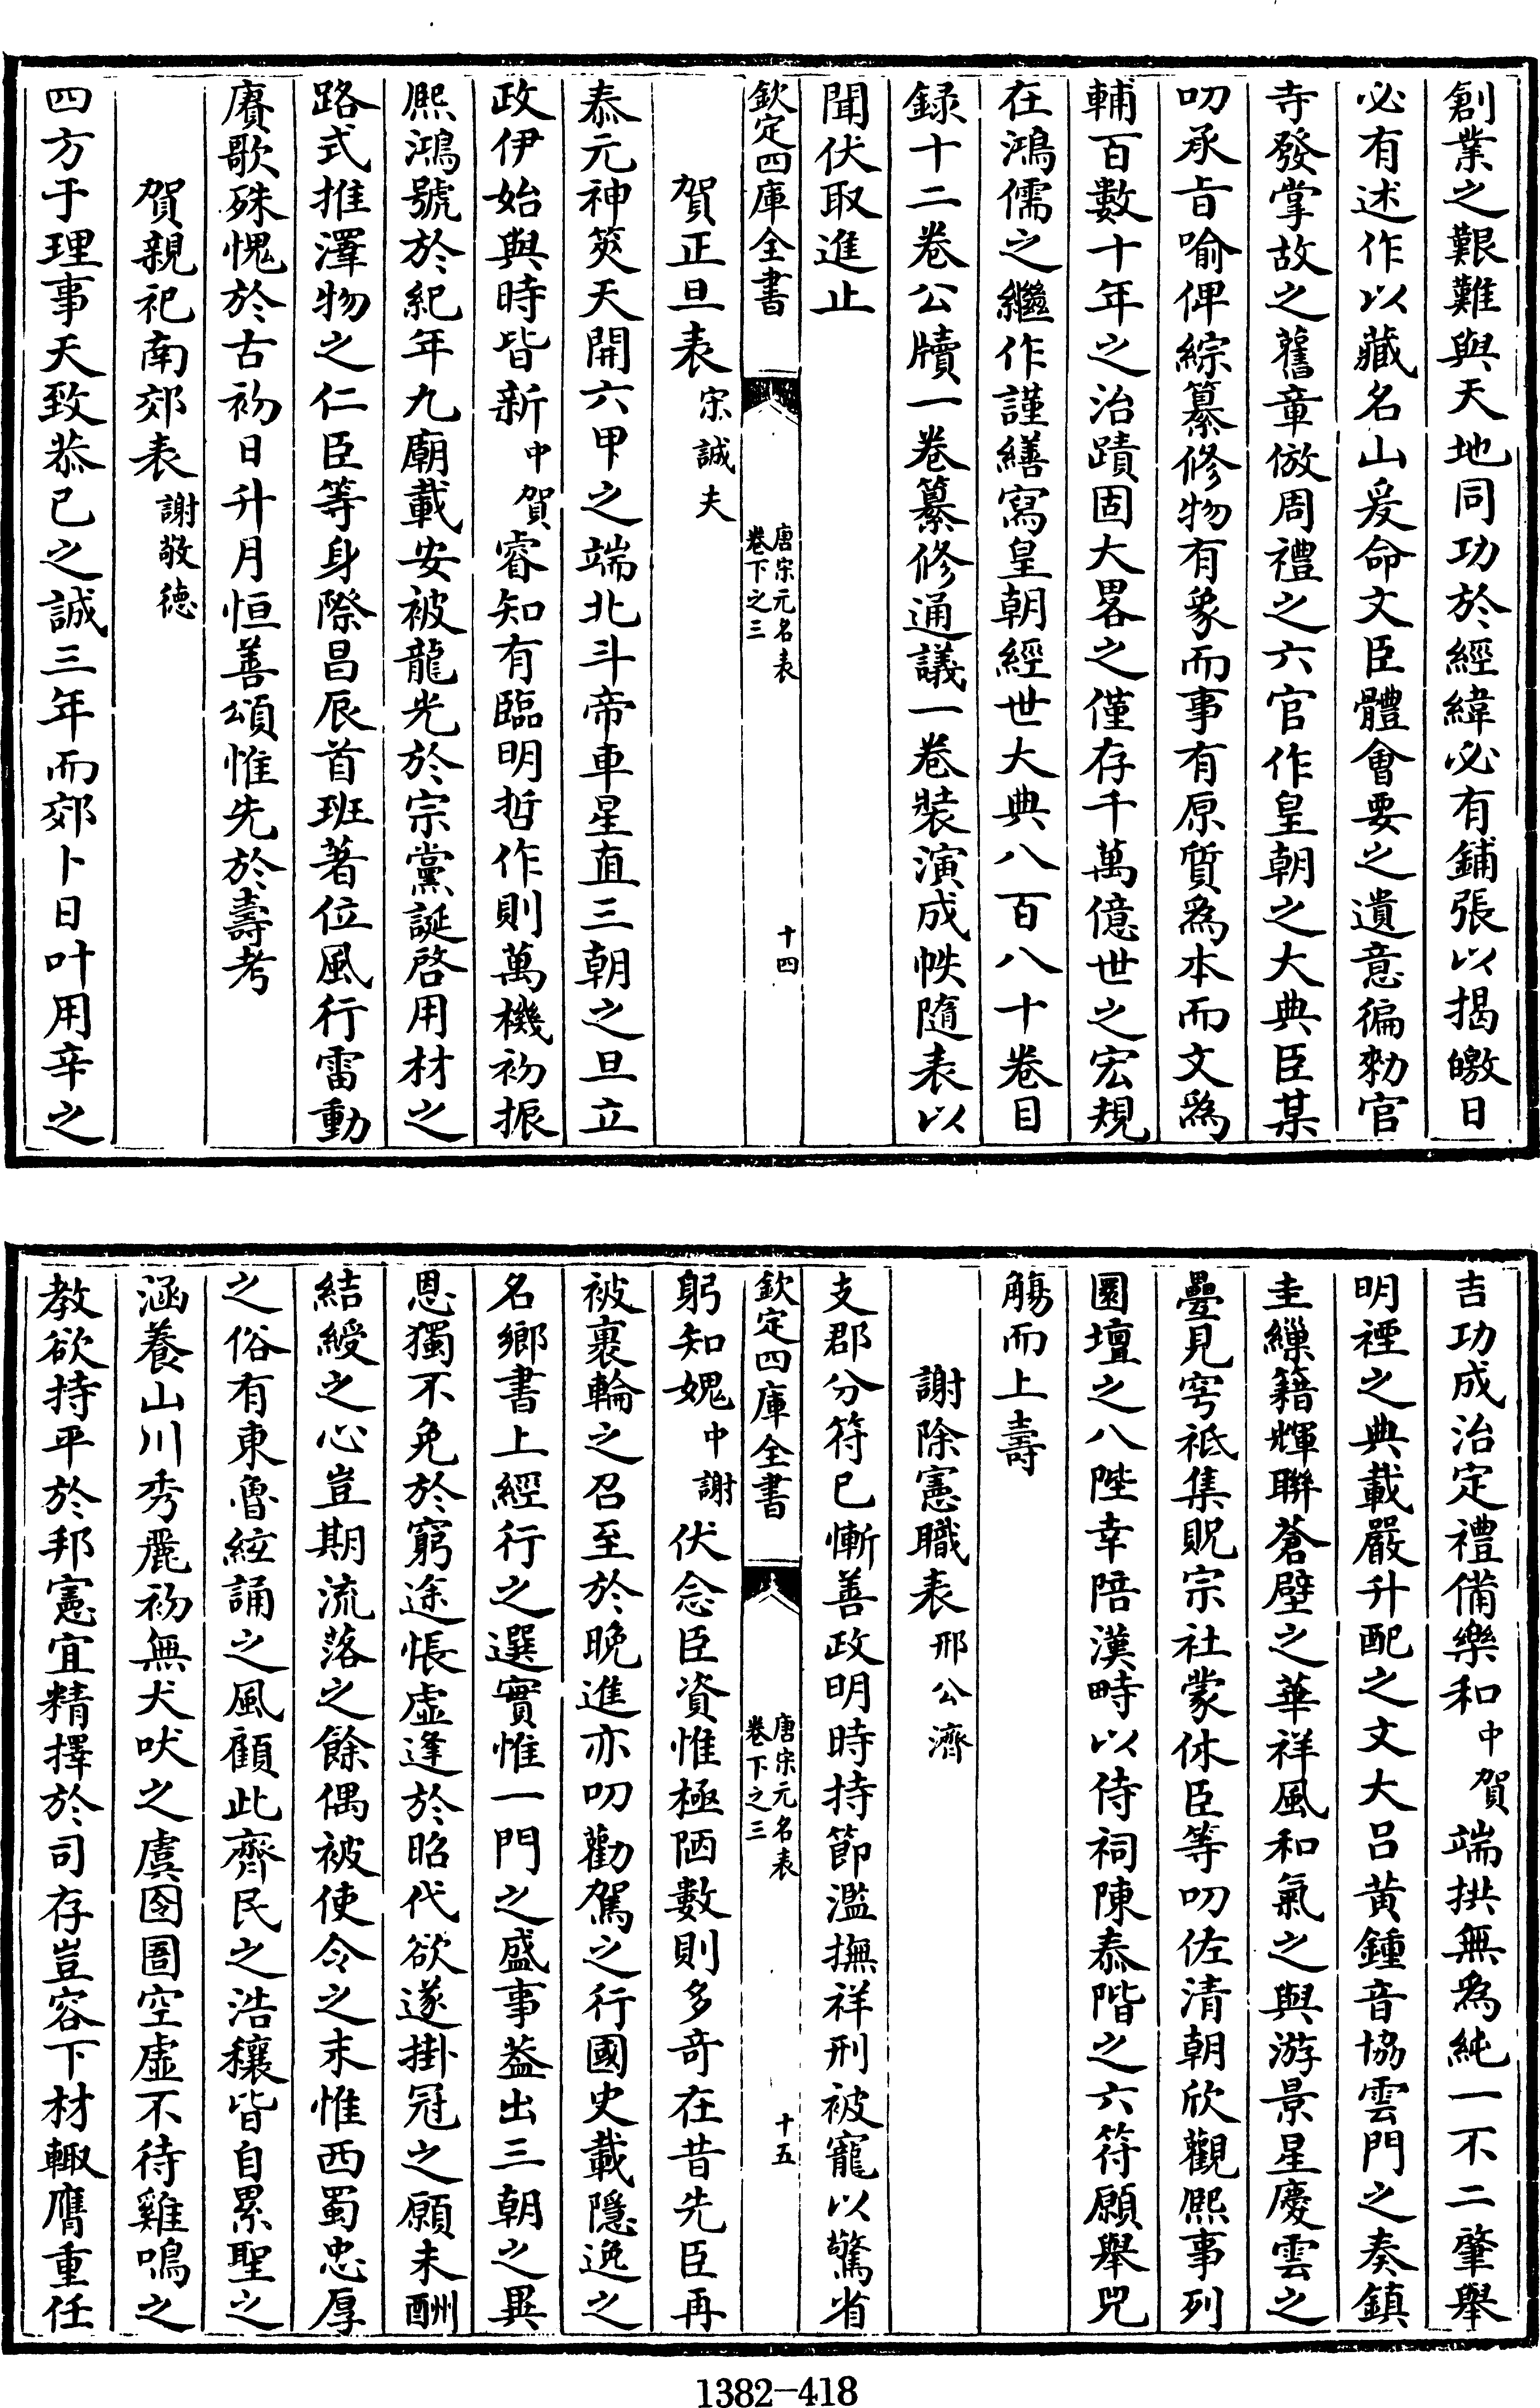 創業之艱難與天地同功於經緯必有鋪張以揭皦日
必有述作以藏名山爰命文臣體會要之遺意徧勑官
寺發掌故之舊章倣周禮之六官作皇朝之大典臣某
叨承旨喻俾綜纂修物有象而事有原質為本而文為
輔百數十年之治蹟固大畧之僅存千萬億世之宏規
在鴻儒之繼作謹繕寫皇朝經世大典八百八十卷目
録十二卷公牘一卷纂修通議一卷裝潢成帙隨表以
聞伏取進止
欽定四庫全書 唐宋元名表卷下之三 十四
賀正旦表 宋誠夫
泰元神筴天開六甲之端北斗帝車星直三朝之旦立
政伊始與時皆新中賀睿知有臨明哲作則萬機初振
熈鴻號於紀年九廟載安被龍光於宗黨誕啓用材之
路式推澤物之仁臣等身際昌辰首班著位風行雷動
賡歌殊愧於古初日升月恒善頌惟先於壽考
賀親祀南郊表 謝敬徳
四方于理事天致恭已之誠三年而郊卜日叶用辛之
吉功成治定禮備樂和中賀端拱無為純一不二肇舉
明禋之典載嚴升配之文大呂黄鍾音協雲門之奏鎮
圭繅籍輝聯蒼壁之華祥風和氣之與游景星慶雲之
疊見穹祇集貺宗社蒙休臣等叨佐清朝欣觀熈事列
圜壇之八陛幸陪漢畤以侍祠陳泰階之六符願舉兕
觴而上壽
謝除憲職表 邢公濟
支郡分符已慚善政明時持節濫撫祥刑被寵以驚省
欽定四庫全書 唐宋元名表卷下之三 十五
躬知媿中謝伏念臣資惟極陋數則多奇在昔先臣再
被裹輪之召至於晚進亦叨勸駕之行國史載隱逸之
名鄉書上經行之選實惟一門之盛事葢出三朝之異
恩獨不免於窮途悵虛逢於昭代欲遂掛冠之願未酬
結綬之心豈期流落之餘偶被使令之末惟西蜀忠厚
之俗有東魯絃誦之風顧此齊民之浩穰皆自累聖之
涵養山川秀麗初無犬吠之虞囹圄空虛不待雞鳴之
教欲持平於邦憲宜精擇於司存豈容下材輙膺重任
1382-418